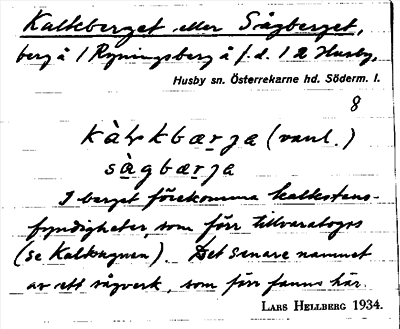 Kalkberget eller Sågberget,
berg å 1 Ryningsberg å f.d. 1 2 Husby,
Husby sn. Österrekarne hd. Söderm. l.
8
kàlkbærja (vanl.)
sàgbærja
I berget förekomma kalkstens-
fyndigheter, som förr tillvaratogos
(se Kalkugnen). Det senare namnet
av ett sågverk, som förr fanns här.
LARS HELLBERG 1934.